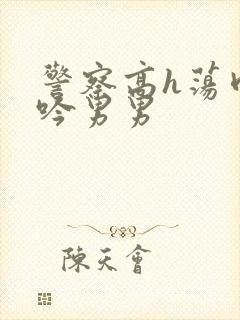 警察高h荡
吟男男
陳天會